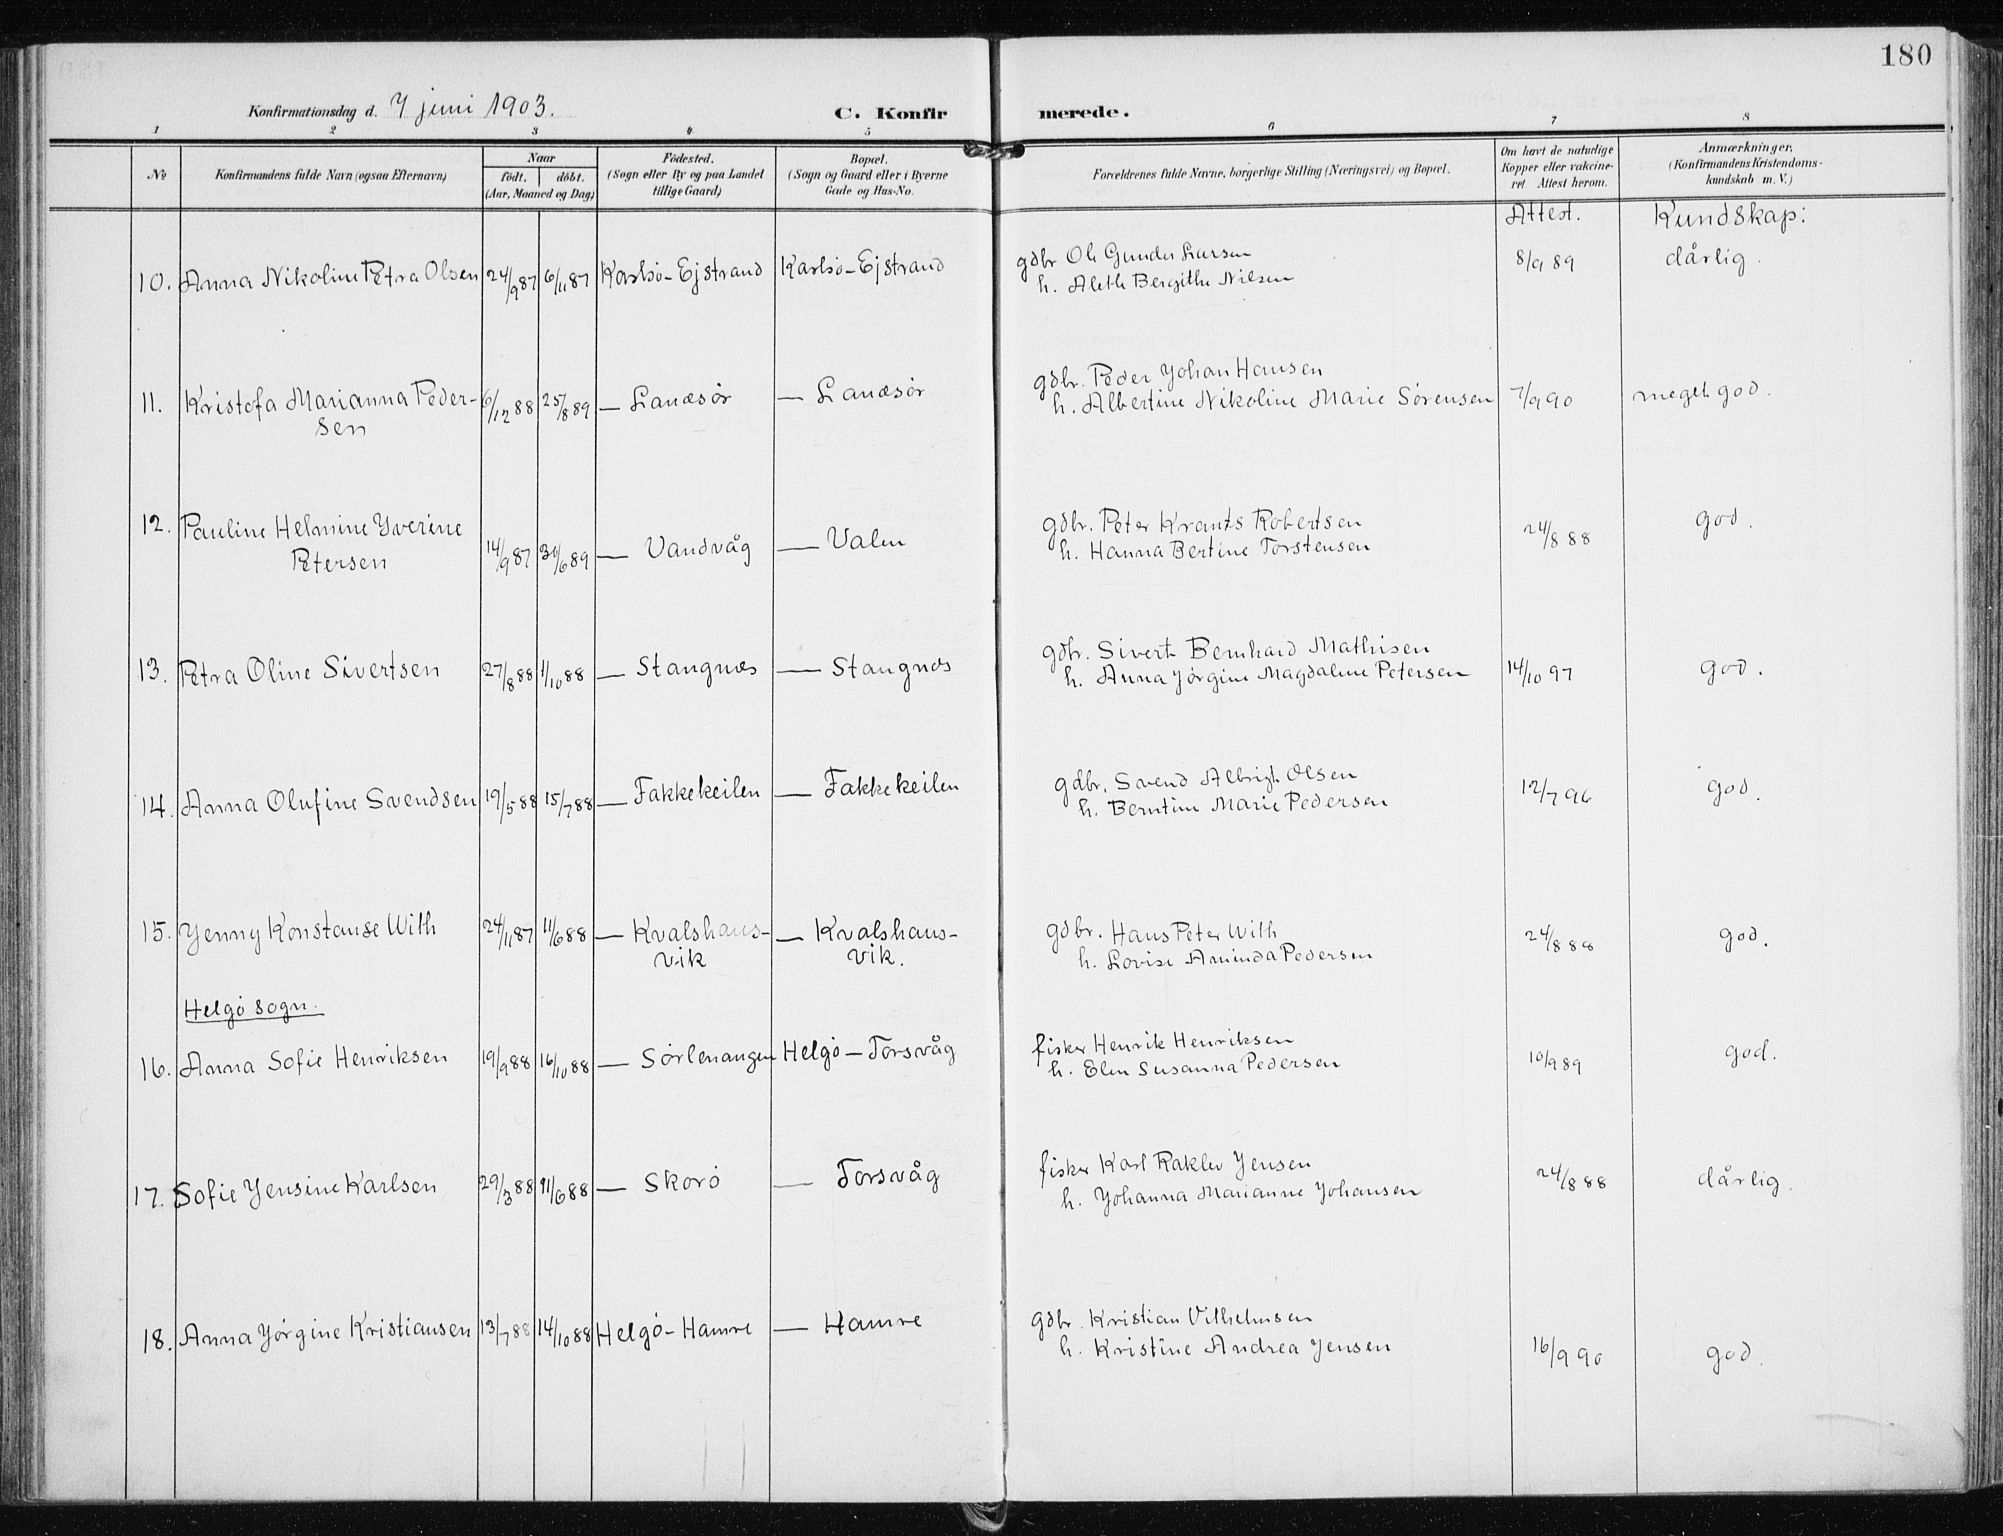 180
Konfirmationsdag d. 7 juni 1903. C. Konfir merede.
1 2 3 4 5 6 7 8
No Konfirmandens fulde Navn (ogsaa Efternavn) Naar födt. döbt. (Aar, Maaned og Dag) Födested. (Sogn eller By og paa Landet tillige Gaard) Bopæl. (Sogn og Gaard eller i Byerne Gade og Hus-No. Forældrenes fulde Navne, borgerlige Stilling (Næringsvei) og Bopæl. Om havt de naturlige Kopper eller vakcineret Attest herom. Anmærkninger. (Konfirmandens Kristendomskundskab m. V.)
Attest. Kundskap:
10. Anna Nikoline Petra Olsen 24/9 87 6/11 87 Karlsö-Ejstrand Karlsö-Ejstrand gdbr Ole Gunder Larsen 8/9 89 dårlig.
h. Aleth Bergithe Nilsen
11. Kristofa Marianna Peder- 6/12 88 25/8 89 — Lanæsör — Lanæsör gdbr. Peder Johan Hansen 7/9 90 meget god.
sen h. Albertine Nikoline Marie Sørensen
12. Pauline Helmine Yverine 14/9 87 30/6 89 — Vandvåg — Valen gdbr. Peter Krants Robertsen 24/8 88 god.
Petersen h. Hanna Bertine Torstensen
13. Petra Oline Sivertsen 27/8 88 1/10 88 — Stangnæs — Stangnæs gdbr. Sivert Bernhard Mathisen 14/10 97 god.
h. Anna Jørgine Magdalene Petersen
14. Anna Olufine Svendsen 19/5 88 15/7 88 — Fakkekeilen — Fakkekeilen gdbr. Svend Albrigt Olsen 12/7 96 god.
h. Berntine Marie Pedersen
15. Jenny Konstanse With 24/11 87 11/6 88 — Kvalshaus- — Kvalshaus- gdbr. Hans Peter With 24/8 88 god.
vik vik. h. Lovise Aminda Pedersen
Helgö sogn.
16. Anna Sofie Henriksen 19/9 88 16/10 88 — Sörlenangen Helgö-Torsvåg fisker Henrik Henriksen 10/9 89 god.
h. Elen Susanna Pedersen
17. Sofie Jensine Karlsen 29/3 88 11/6 88 — Skorö — Torsvåg fisker Karl Raklev Jensen 24/8 88 dårlig.
h. Johanna Marianne Johansen
18. Anna Jörgine Kristiansen 13/7 88 14/10 88 Helgö-Hamre — Hamre gdbr. Kristian Vilhelmsen 16/9 90 god.
h. Kristine Andrea Jensen